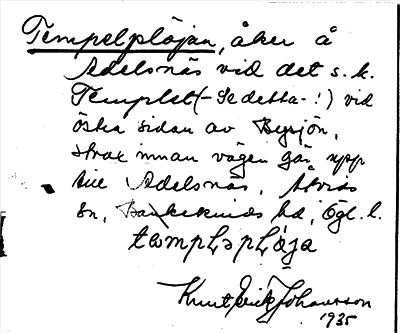 Tempelplöjan, åker å
Adelsnäs vid det s. k.
Templet (- Se detta -!) vid
östra sidan av Bysjön,
strax innan vägen går upp
till Adelsnäs, Åtvids
sn, Bankekinds hd, Ögl. l.
tæmpḷspḷöja
Knut Erik Johansson
1935